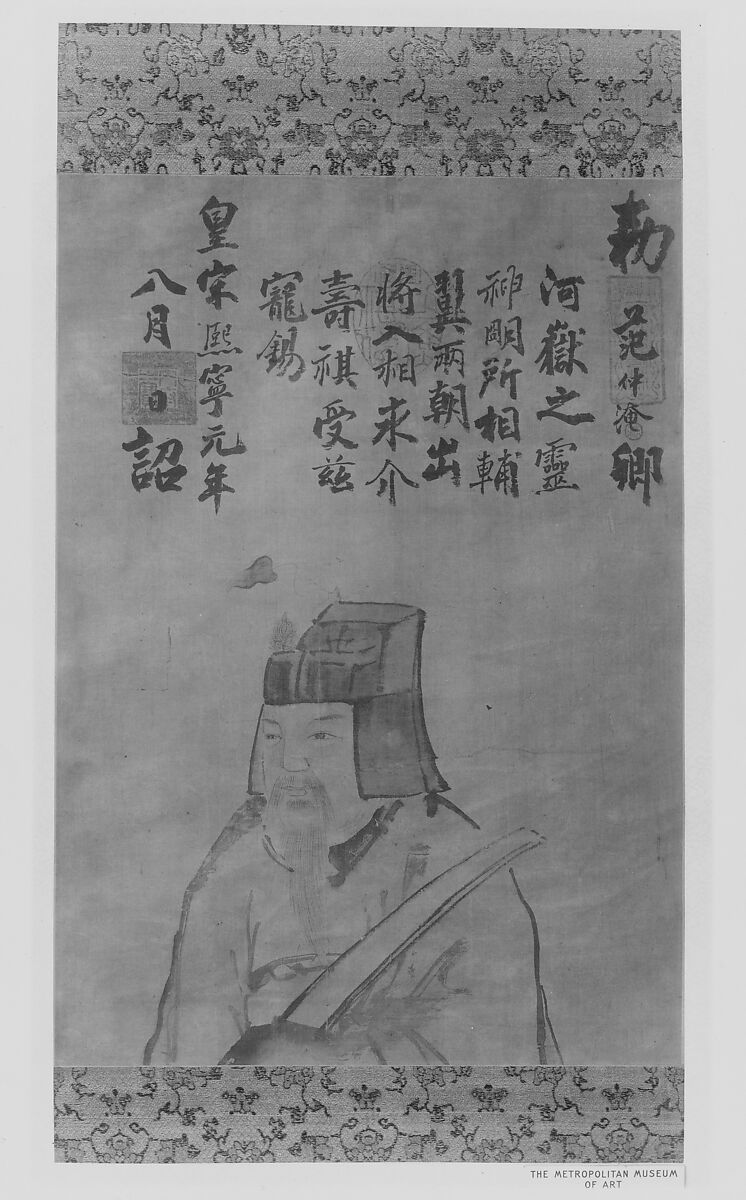 勅范仲淹卿
河嶽之靈
神明所相輔
翼兩朝出
將入相永介
壽祺受兹
寵錫
皇宋熙寧元年
八月日詔
THE METROPOLITAN MUSEUM
OF ART